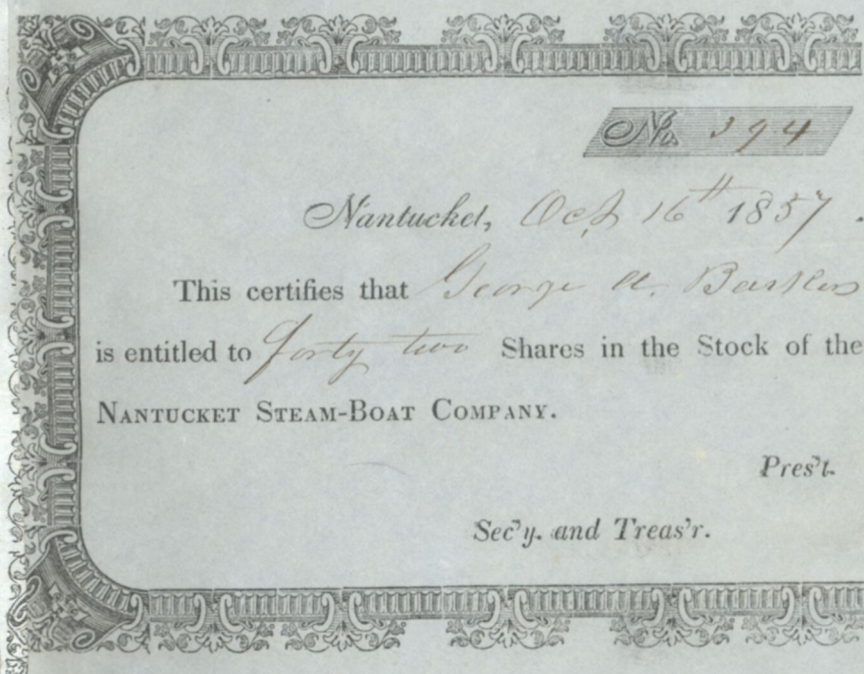 No. 394
Nantucket, Oct 16th 1857.
This certifies that George A.
is entitled to forty two Shares in the Stock of the
NANTUCKET STEAM-BOAT COMPANY.
Pres't.
Sec'y. and Treas'r.